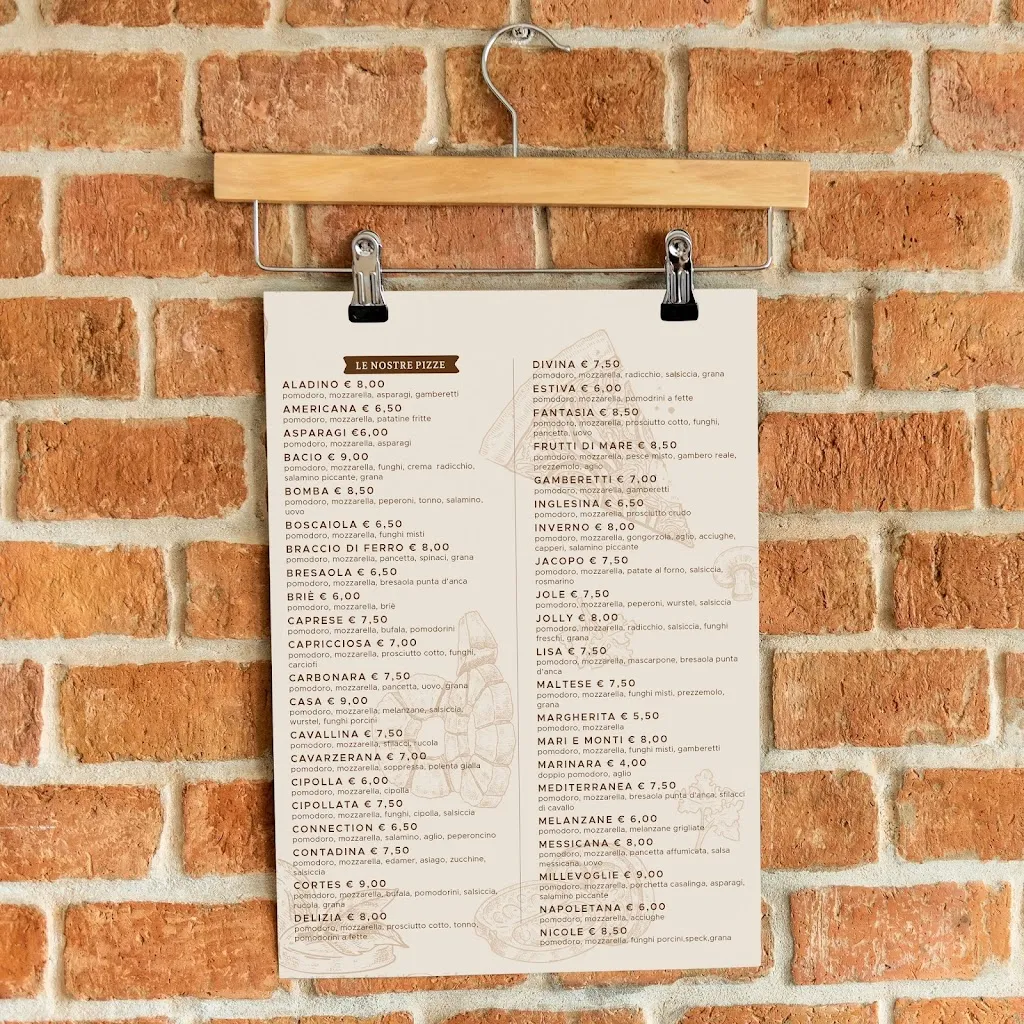 LE NOSTRE PIZZE
ALADINO € 8,00
pomodoro, mozzarella, asparagi, gamberetti
AMERICANA € 6,50
pomodoro, mozzarella, patatine fritte
ASPARAGI €6,00
pomodoro, mozzarella, asparagi
BACIO € 9,00
pomodoro, mozzarella, funghi, crema radicchio,
salamino piccante, grana
BOMBA € 8,50
pomodoro, mozzarella, peperoni, tonno, salamino,
uovo
BOSCAIOLA € 6,50
pomodoro, mozzarella, funghi misti
BRACCIO DI FERRO € 8,00
pomodoro, mozzarella, pancetta, spinaci, grana
BRESAOLA € 6,50
pomodoro, mozzarella, bresaola punta d'anca
BRIÈ € 6,00
pomodoro, mozzarella, briè
CAPRESE € 7,50
pomodoro, mozzarella, bufala, pomodorini
CAPRICCIOSA € 7,00
pomodoro, mozzarella, prosciutto cotto, funghi,
carciofi
CARBONARA € 7,50
pomodoro, mozzarella, pancetta, uovo, grana
CASA € 9,00
pomodoro, mozzarella, melanzane, salsiccia,
wurstel, funghi porcini
CAVALLINA € 7,50
pomodoro, mozzarella, sfilacci, rucola
CAVARZERANA € 7,00
pomodoro, mozzarella, soppressa, polenta gialla
CIPOLLA € 6,00
pomodoro, mozzarella, cipolla
CIPOLLATA € 7,50
pomodoro, mozzarella, funghi, cipolla, salsiccia
CONNECTION € 6,50
pomodoro, mozzarella, salamino, aglio, peperoncino
CONTADINA € 7,50
pomodoro, mozzarella, edamer, asiago, zucchine,
salsiccia
CORTES € 9,00
pomodoro, mozzarella, bufala, pomodorini, salsiccia,
rucola, grana
DELIZIA € 8,00
pomodoro, mozzarella, prosciutto cotto, tonno,
pomodorini a fette
DIVINA € 7,50
pomodoro, mozzarella, radicchio, salsiccia, grana
ESTIVA € 6,00
pomodoro, mozzarella, pomodrini a fette
FANTASIA € 8,50
pomodoro, mozzarella, prosciutto cotto, funghi,
pancetta, uovo
FRUTTI DI MARE € 8,50
pomodoro, mozzarella, pesce misto, gambero reale,
prezzemolo, aglio
GAMBERETTI € 7,00
pomodoro, mozzarella, gamberetti
INGLESINA € 6,50
pomodoro, mozzarella, prosciutto crudo
INVERNO € 8,00
pomodoro, mozzarella, gongorzola, aglio, acciughe,
capperi, salamino piccante
JACOPO € 7,50
pomodoro, mozzarella, patate al forno, salsiccia,
rosmarino
JOLE € 7,50
pomodoro, mozzarella, peperoni, wurstel, salsiccia
JOLLY € 8,00
pomodoro, mozzarella, radicchio, salsiccia, funghi
freschi, grana
LISA € 7,50
pomodoro, mozzarella, mascarpone, bresaola punta
d'anca
MALTESE € 7,50
pomodoro, mozzarella, funghi misti, prezzemolo,
grana
MARGHERITA € 5,50
pomodoro, mozzarella
MARI E MONTI € 8,00
pomodoro, mozzarella, funghi misti, gamberetti
MARINARA € 4,00
doppio pomodoro, aglio
MEDITERRANEA € 7,50
pomodoro, mozzarella, bresaola punta d'anca, sfilacci
di cavallo
MELANZANE € 6,00
pomodoro, mozzarella, melanzane grigliate
MESSICANA € 8,00
pomodoro, mozzarella, pancetta affumicata, salsa
messicana, uovo
MILLEVOGLIE € 9,00
pomodoro, mozzarella, porchetta casalinga, asparagi,
salamino piccante
NAPOLETANA € 6,00
pomodoro, mozzarella, acciughe
NICOLE € 8,50
pomodoro, mozzarella, funghi porcini,speck,grana